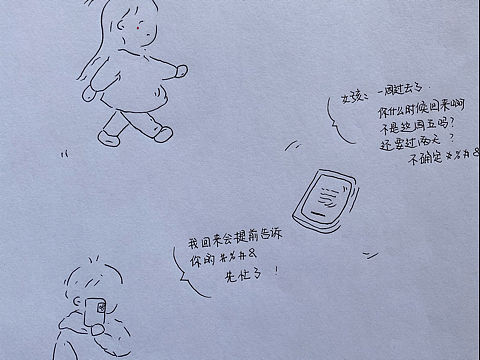 女孩：一周过去了.
你什么时候回来啊
不是这周五吗？
还要过两天？
不确定 *%#&
我回来会提前告诉
你的 *%#&
先忙了！